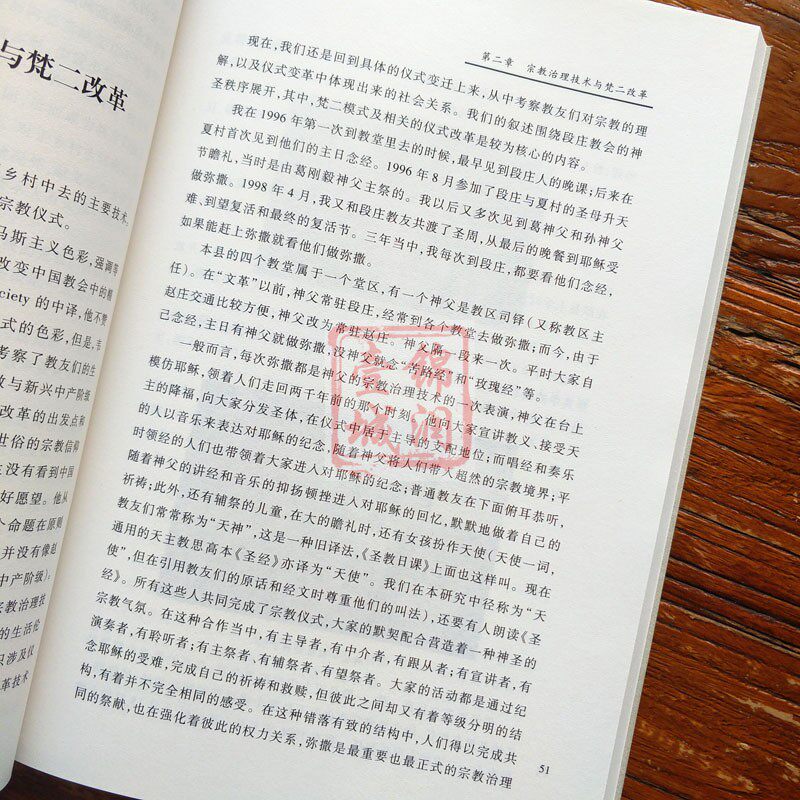 与梵二改革
乡村中去的主要技术。
宗教仪式。
马斯主义色彩，强调等
改变中国教会中的精
ciety 的中译，他不赞
式的色彩，但是，韦
考察了教友们的生
教与新兴中产阶级
改革的出发点和
世俗的宗教信仰
没有看到中国
好愿望。他从
个命题在原则
并没有像起
中产阶级)。
宗教治理技
的生活伦
只涉及仪
革技术
第二章 宗教治理技术与梵二改革
现在，我们还是回到具体的仪式变迁上来，从中考察教友们对宗教的理
解，以及仪式变革中体现出来的社会关系。我们的叙述围绕段庄教会的神
圣秩序展开，其中，梵二模式及相关的仪式改革是较为核心的内容。
我在 1996 年第一次到教堂里去的时候，最早见到段庄人的晚课；后来在
夏村首次见到他们的主日念经。1996 年 8 月参加了段庄与夏村的圣母升天
节瞻礼，当时是由葛刚毅神父主祭的。我以后又多次见到葛神父和孙神父
做弥撒。1998 年 4 月，我又和段庄教友共渡了圣周，从最后的晚餐到耶稣受
难、到望复活和最终的复活节。三年当中，我每次到段庄，都要看他们念经，
如果能赶上弥撒就看他们做弥撒。
本县的四个教堂属于一个堂区，有一个神父是教区司铎(又称教区主
任)。在“文革”以前，神父常驻段庄，经常到各个教堂去做弥撒；而今，由于
赵庄交通比较方便，神父改为常驻赵庄。神父隔一段来一次。平时大家自
己念经，主日有神父就做弥撒，没神父就念“苦路经”和“玫瑰经”等。
一般而言，每次弥撒都是神父的宗教治理技术的一次表演，神父在台上
模仿耶稣，领着人们走回两千年前的那个时刻。他向大家宣讲教义、接受天
主的降福，向大家分发圣体，在仪式中居于主导的支配地位；而唱经和奏乐
的人以音乐来表达对耶稣的纪念，随着神父将人们带入超然的宗教境界；平
时领经的人们也带领着大家进入对耶稣的纪念；普通教友在下面俯耳恭听，
随着神父的讲经和音乐的抑扬顿挫进入对耶稣的回忆，默默地做着自己的
祈祷；此外，还有辅祭的儿童，在大的瞻礼时，还有女孩扮作天使(天使一词，
教友们常常称为“天神”，这是一种旧译法，《圣教日课》上面也这样叫。现在
通用的天主教思高本《圣经》亦译为“天使”。我们在本研究中径称为“天
使”，但在引用教友们的原话和经文时尊重他们的叫法)，还要有人朗读《圣
经》。所有这些人共同完成了宗教仪式，大家的默契配合营造着一种神圣的
宗教气氛。在这种合作当中，有主导者，有中介者，有跟从者；有宣讲者，有
演奏者，有聆听者；有主祭者、有辅祭者、有望祭者。大家的活动都是通过纪
念耶稣的受难，完成自己的祈祷和救赎，但彼此之间却又有着等级分明的结
构，有着并不完全相同的感受。在这种错落有致的结构中，人们得以完成共
同的祭献，也在强化着彼此的权力关系，弥撒是最重要也最正式的宗教治理
51
锦润
壹城